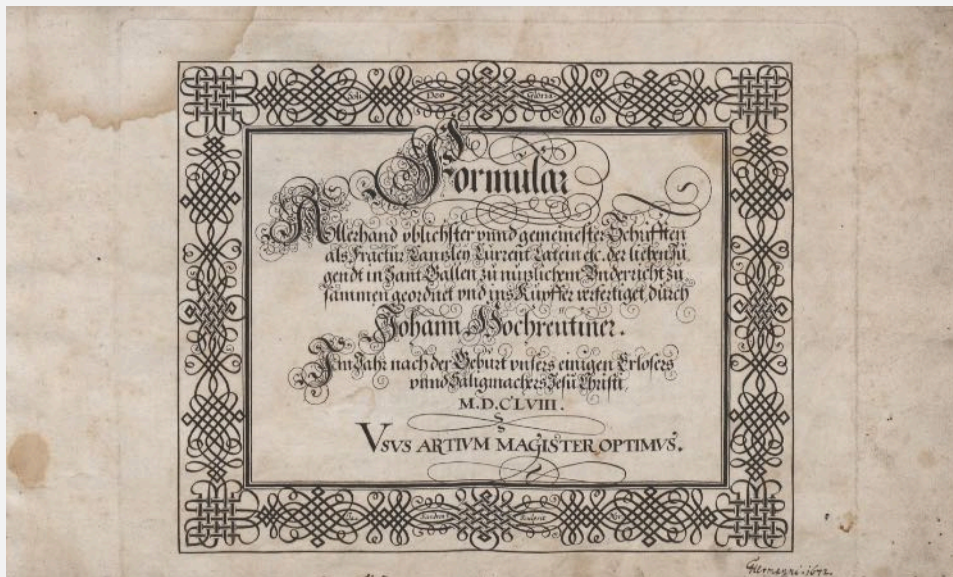 Soli Deo Gloria
Formular
Allerhand üblichster vnnd gemeinester Schrifften
als Fractur Cantzley Current Latein etc. der lieben Ju
gendt in Sant Gallen zu nutzlichem Vnderricht zu
sammen geordnet vnd ins Kupffer verfertiget, durch
Johann Hochreutiner.
Im Jahr nach der Gebürt vnsers einigen Erlösers
vnnd Säligmachers Jesu Christi,
M.D.CLVIII.
VSVS ARTIVM MAGISTER OPTIMVS.
sculpsit
1672.